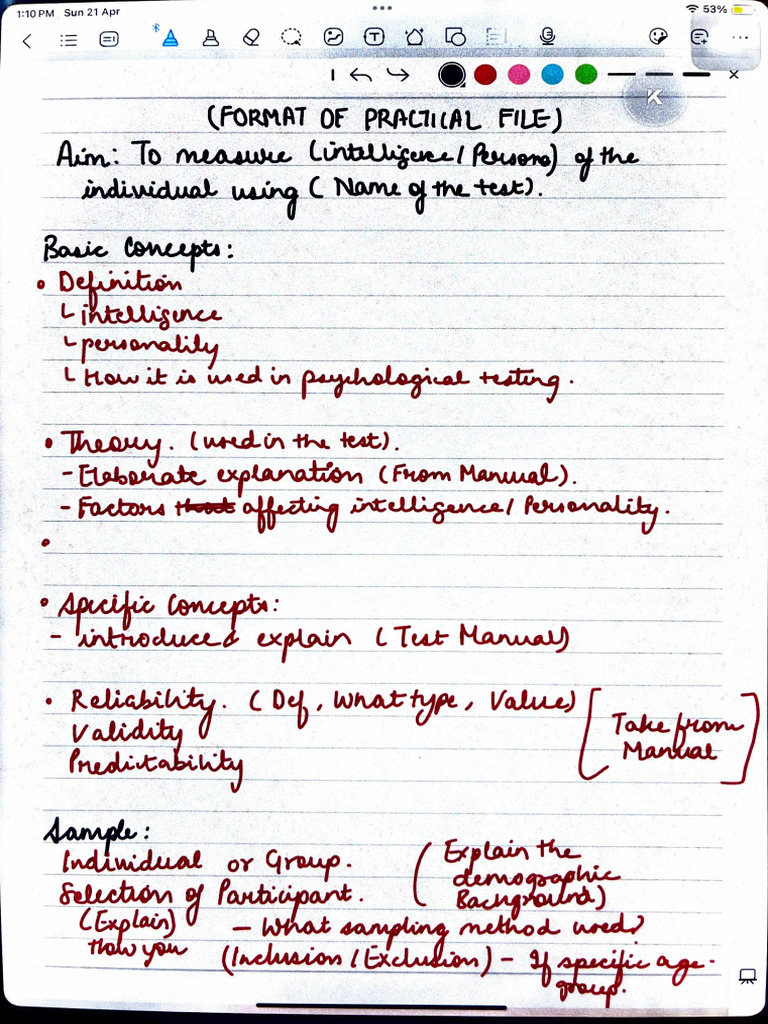 1:10 PM Sun 21 Apr
53%
(FORMAT OF PRACTICAL FILE)
Aim: To measure (intelligence/Persona) of the
individual using (Name of the test).
Basic Concepts:
• Definition
└ intelligence
└ personality
└ How it is used in psychological testing.
• Theory. (used in the test).
- Elaborate explanation (From Manual).
- Factors affecting intelligence/Personality.
•
• Specific Concepts:
- introduce & explain (Test Manual)
• Reliability. (Def, What type, Value)
Validity
Predictability
[Take from
Manual]
Sample:
Individual or Group.
Selection of Participant.
(Explain the
demographic
Background)
(Explain)
How you
- What sampling method used?
(Inclusion/Exclusion) - If specific age-
group.